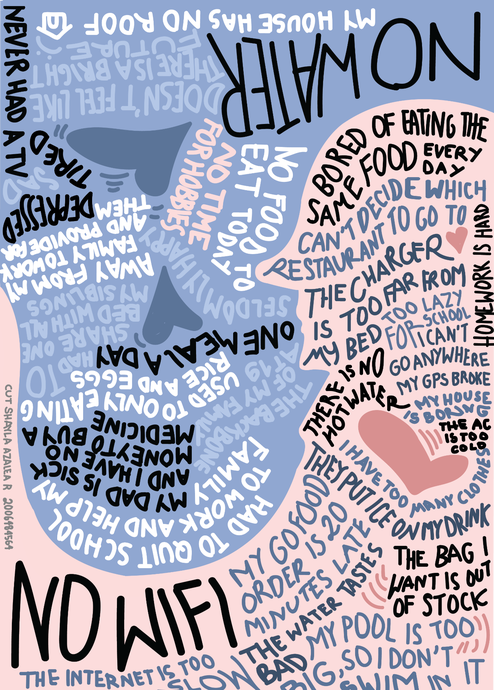 MY HOUSE HAS NO ROOF
NEVER HAD A TV
DOESN'T FEEL LIKE
THERE IS A BRIGHT
FUTURE
NO WATER
TIRED
SAD
DEPRESSED
NO TIME
FOR HOBBIES
NO FOOD TO
EAT TODAY
AWAY FROM MY
FAMILY TO WORK
AND PROVIDE FOR
THEM
SELDOMLY HAPPY
HAD TO
SHARE ONE
BED WITH ALL
MY SIBLINGS
ONE MEAL A DAY
USED TO ONLY EATING
RICE AND EGGS
THE BACKBONE
OF MY FAMILY
MY DAD IS SICK
AND I HAVE NO
MONEY TO BUY A
MEDICINE
HAD TO QUIT SCHOOL
TO WORK AND HELP MY
FAMILY
BORED OF EATING THE
SAME FOOD EVERY
DAY
CAN'T DECIDE WHICH
RESTAURANT TO GO TO
HOMEWORK IS HARD
THE CHARGER
IS TOO FAR FROM
MY BED
TOO LAZY
FOR SCHOOL
I CAN'T
GO ANYWHERE
MY GPS BROKE
THERE IS NO
HOT WATER
MY HOUSE
IS BORING
THE AC
IS TOO
COLD
I HAVE TOO MANY CLOTHES
THEY PUT ICE ON MY DRINK
MY GOFOOD
ORDER IS 20
MINUTES LATE
THE WATER TASTES
BAD
THE BAG I
WANT IS OUT
OF STOCK
MY POOL IS TOO
BIG, SO I DON'T
SWIM IN IT
NO WIFI
THE INTERNET IS TOO
SLOW
CUT SHAYLA AZALEA R 2006484564